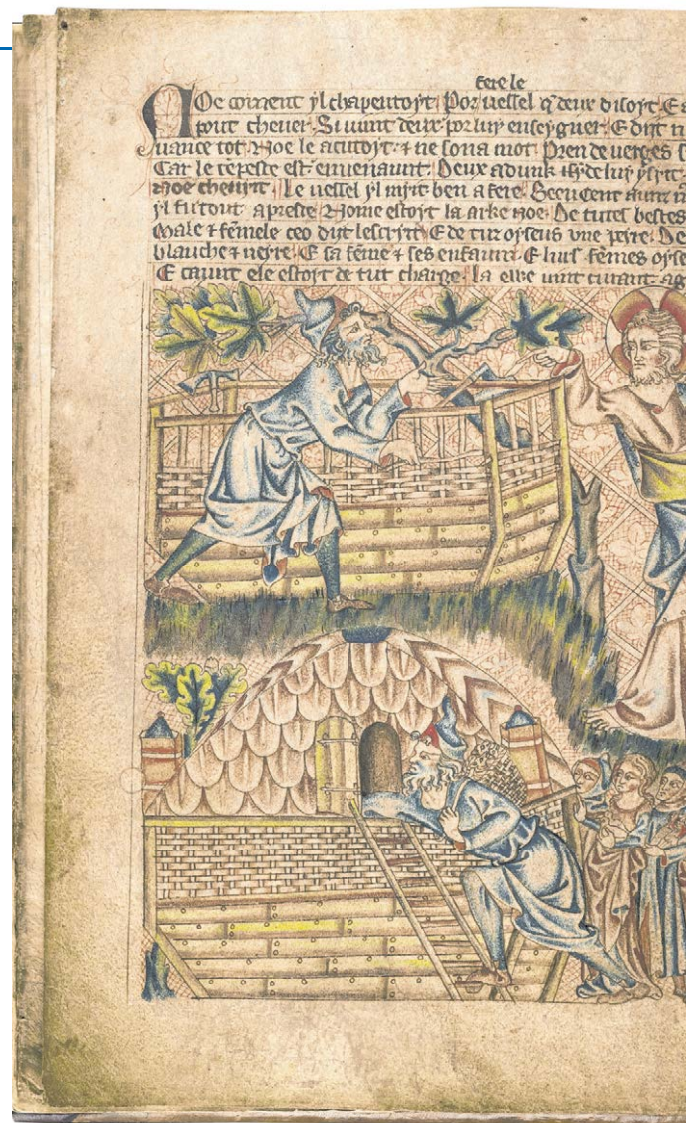 fere le
Noe coment yl chapentoyt Por vessel q deux disoyt E a
pout chever. Si vint deux por luy enseygner. E dyt n
vance tot. Noe le acutoyt. & ne sona mot Pren de verges s
Car le tēpeste est envenaunt. Deux adunk de luy
Noe chevist. Le vessel yl myt ben a fere. Seeu cent aunz
yl fu tout apreste Nome estoyt la arke noe. De tutes bestes
Male & femele ceo dut lescryt E de tuz oyseus une peyre. De
blanche & neyre. E sa feme & ses enfaunz. E lius femes oyse
E caunt ele estoyt de tut charge. La ewe vint curant. ag